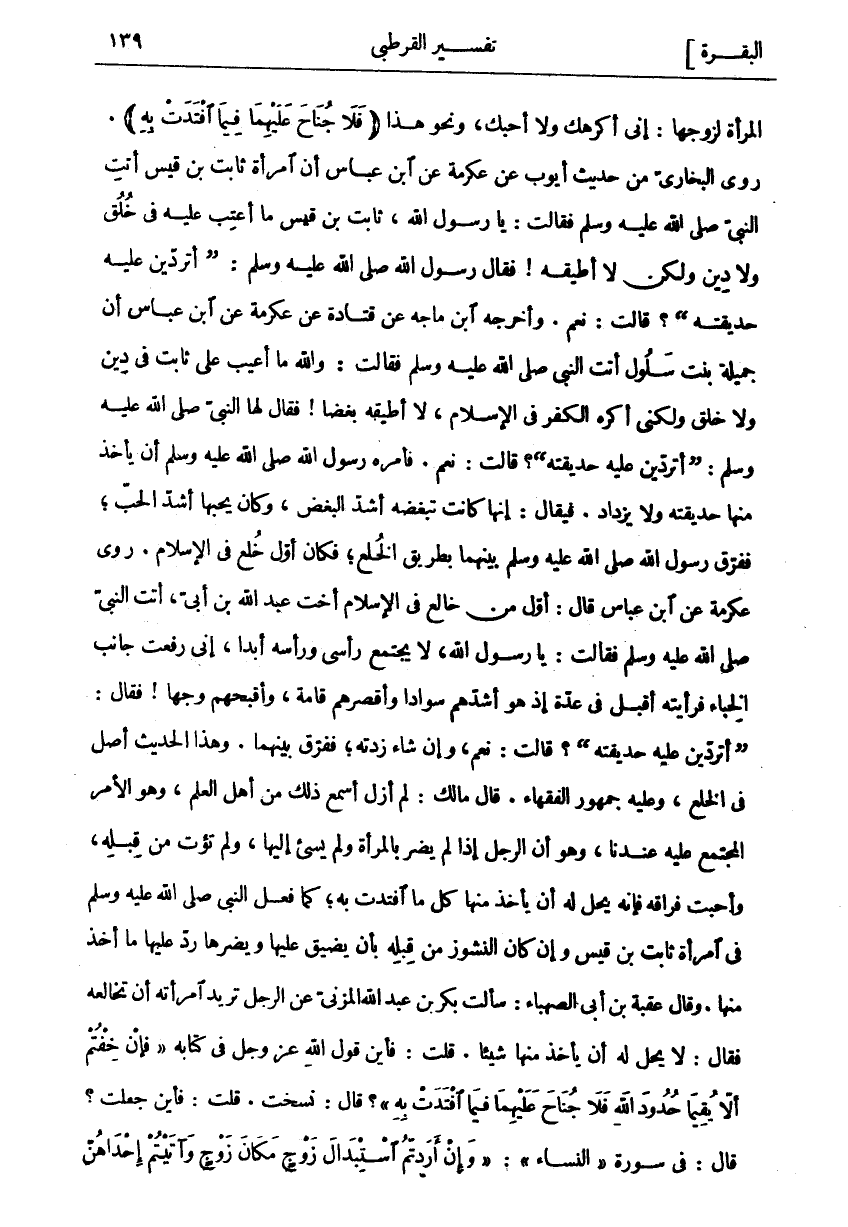 البقــرة ]
تفســـير القرطبى
١٣٩
المرأة لزوجها : إنى أكرهك ولا أحبك، ونحو هــذا ﴿ فَلَا جُنَاحَ عَلَيْهِمَا فِيمَا ٱفْتَدَتْ بِهِ ﴾ .
روى البخارىّ من حديث أيوب عن عكرمة عن ٱبن عبــاس أن ٱمرأة ثابت بن قيس أتتِ
النبىّ صلى الله عليــه وسلم فقالت : يا رســول الله ، ثابت بن قيس ما أعتِب عليــه فى خُلُق
ولا دِين ولكن لا أطيقــه ! فقال رسول الله صلى الله عليــه وسلم : ” أتردّين عليــه
حديقتــه “ ؟ قالت : نعم . وأخرجه ٱبن ماجه عن قتــادة عن عكرمة عن ٱبن عبــاس أن
جميلة بنت سَــلُول أتت النبى صلى الله عليــه وسلم فقالت : والله ما أعيب على ثابت فى دِين
ولا خلق ولكنى أكره الكفر فى الإســلام ، لا أطيقه بغضا ! فقال لها النبىّ صلى الله عليــه
وسلم : ” أتردّين عليه حديقته “؟ قالت : نعم . فأمره رسول الله صلى الله عليه وسلم أن يأخذ
منها حديقته ولا يزداد . فيقال : إنها كانت تبغضه أشدّ البغض ، وكان يحبها أشدّ الحبّ ؛
ففرّق رسول الله صلى الله عليه وسلم بينهما بطريق الخُلع؛ فكان أوّل خُلع فى الإسلام . روى
عكرمة عن ٱبن عباس قال : أوّل من خالع فى الإسلام أخت عبد الله بن أبىّ، أتت النبىّ
صلى الله عليه وسلم فقالت : يا رســول الله، لا يجتمع رأسى ورأسه أبدا ، إنى رفعت جانب
الخِباء فرأيته أقبــل فى عدّة إذ هو أشدّهم سوادا وأقصرهم قامة ، وأقبحهم وجها ! فقال :
” أتردّين عليه حديقته “ ؟ قالت : نعم، وإن شاء زدته؛ ففرّق بينهما . وهذا الحديث أصل
فى الخلع ، وعليه جمهور الفقهاء . قال مالك : لم أزل أسمع ذلك من أهل العلم ، وهو الأمر
المجتمع عليه عنــدنا ، وهو أن الرجل إذا لم يضر بالمرأة ولم يسئ إليها ، ولم تؤت من قِبــله،
وأحبت فراقه فإنه يحل له أن يأخذ منها كل ما ٱفتدت به؛ كما فعــل النبى صلى الله عليه وسلم
فى ٱمرأة ثابت بن قيس و إن كان النشوز من قِبله بأن يضيق عليها و يضرها ردّ عليها ما أخذ
منها . وقال عقبة بن أبى الصهباء : سألت بكر بن عبد الله المزنىّ عن الرجل تريد ٱمرأته أن تخالعه
فقال : لا يحل له أن يأخذ منها شيئا . قلت : فأين قول الله عز وجل فى كتابه « فَإِنْ خِفْتُمْ
أَلَّا يُقِيمَا حُدُودَ اللهِ فَلَا جُنَاحَ عَلَيْهِمَا فِيمَا ٱفْتَدَتْ بِهِ »؟ قال : نسخت . قلت : فأين جعلت ؟
قال : فى ســورة « النساء » : « وَ إِنْ أَرَدتُمُ ٱسْــتِبْدَالَ زَوْجٍ مَكَانَ زَوْجٍ وَآتَيْتُمْ إِحْدَاهُنَّ